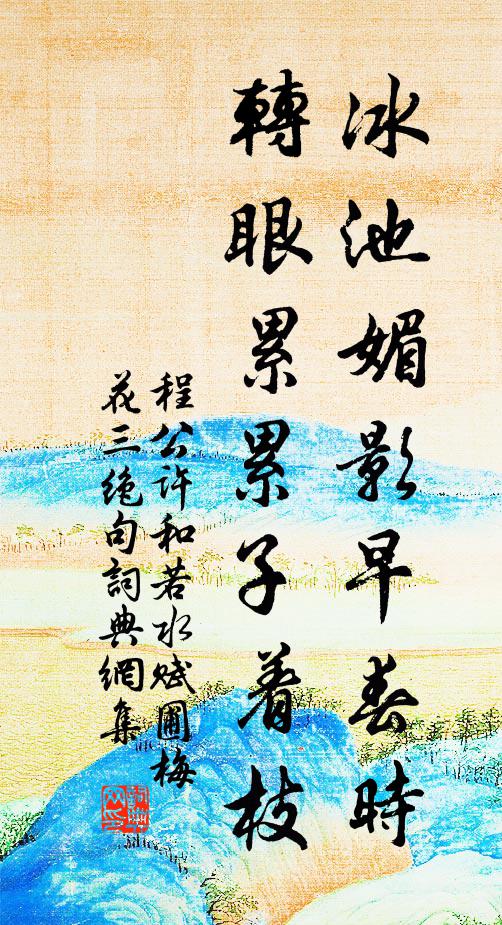 冰池媚影早春時
轉眼累累子着枝
程公許和若水賦圃梅
花三絶句詞典網集